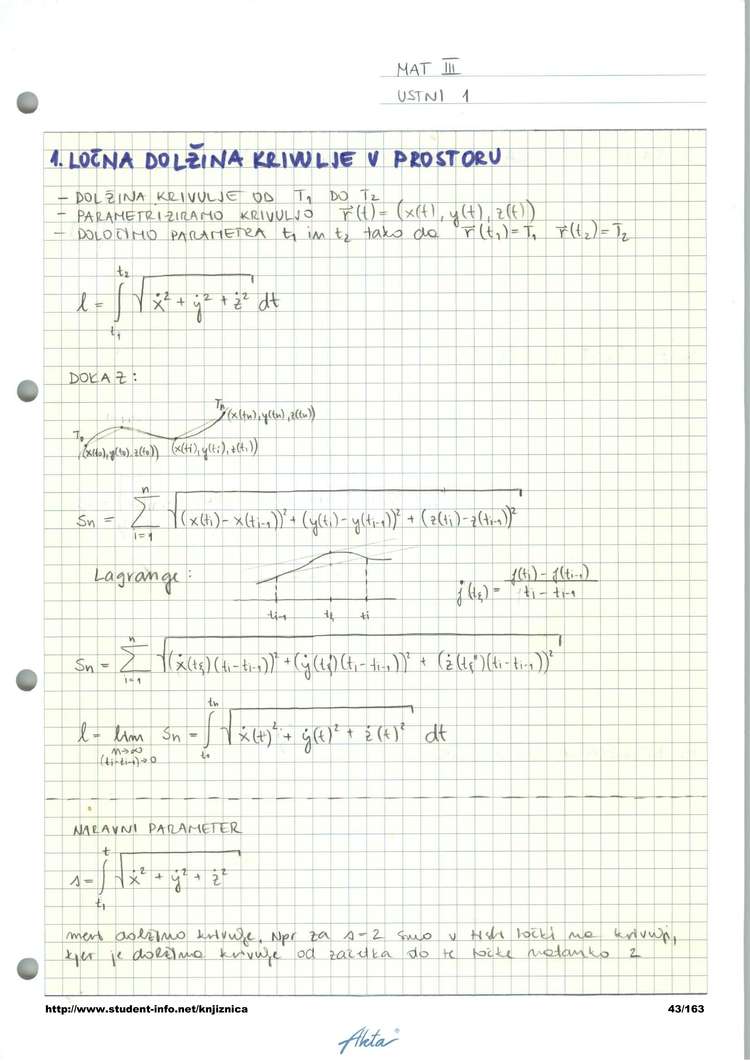 MAT III
USTNI 1
1. LOČNA DOLŽINA KRIVULJE V PROSTORU
- DOLŽINA KRIVULJE OD T₁ DO T₂
- PARAMETRIZIRAMO KRIVULJO r⃗(t) = (x(t), y(t), z(t))
- DOLOČIMO PARAMETRA t₁ in t₂ tako da r⃗(t₁) = T₁ r⃗(t₂) = T₂
l = ∫_{t₁}^{t₂} √(ẋ² + ẏ² + ż²) dt
DOKAZ:
Tₙ (x(tₙ), y(tₙ), z(tₙ))
T₀ (x(t₀), y(t₀), z(t₀)) (x(tᵢ), y(tᵢ), z(tᵢ))
Sₙ = Σ_{i=1}^{n} √((x(tᵢ) - x(tᵢ₋₁))² + (y(tᵢ) - y(tᵢ₋₁))² + (z(tᵢ) - z(tᵢ₋₁))²)
Lagrange: ḟ(t_ξ) = (f(tᵢ) - f(tᵢ₋₁)) / (tᵢ - tᵢ₋₁)
tᵢ₋₁ t_ξ tᵢ
Sₙ = Σ_{i=1}^{n} √((ẋ(t_ξ)(tᵢ - tᵢ₋₁))² + (ẏ(t_ξ')(tᵢ - tᵢ₋₁))² + (ż(t_ξ'')(tᵢ - tᵢ₋₁))²)
l = lim_{n→∞ (tᵢ-tᵢ₋₁)→0} Sₙ = ∫_{t₀}^{tₙ} √(ẋ(t)² + ẏ(t)² + ż(t)²) dt
NARAVNI PARAMETER
s = ∫_{t₁}^{t} √(ẋ² + ẏ² + ż²)
meri dolžino krivulje. Npr za s=2 smo v tisti točki na krivulji,
kjer je dolžina krivulje od začetka do te točke natanko 2
http://www.student-info.net/knjiznica
43/163
Akta